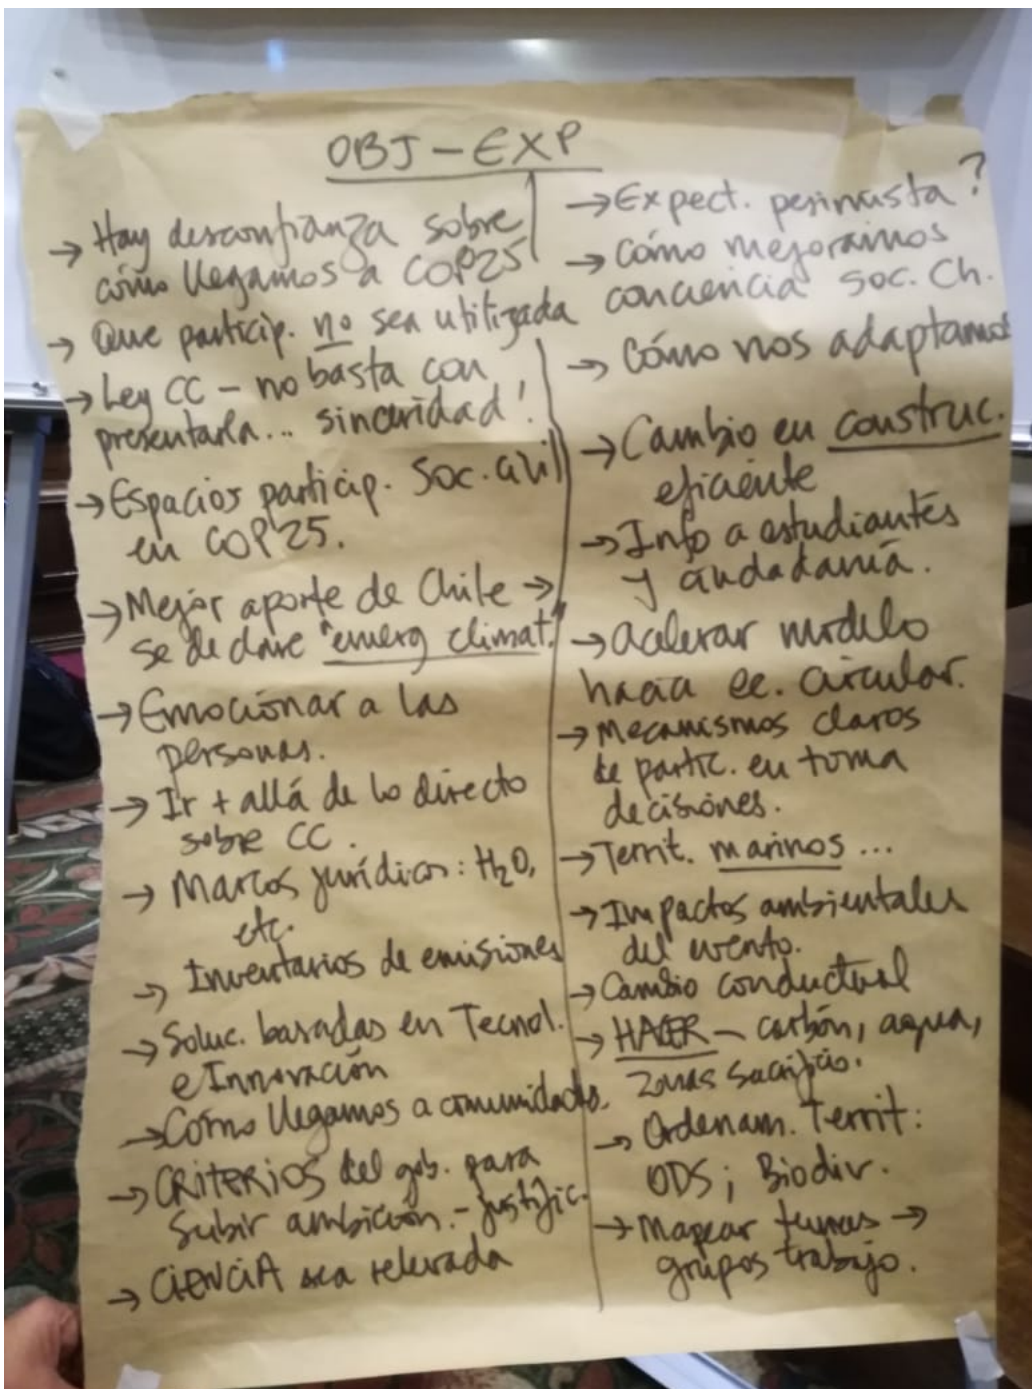 OBJ - EXP
→ Hay desconfianza sobre
cómo llegamos a COP25
→ Que particip. no sea utilizada
→ Ley CC - no basta con
presentarla... sinceridad!
→ Espacios particip. Soc. civil
en COP25.
→ Mejor aporte de Chile →
se declare "emerg climat."
→ Emocionar a las
personas.
→ Ir + allá de lo directo
sobre CC.
→ Marcos jurídicos: H2O,
etc.
→ Inventarios de emisiones
→ Soluc. basadas en Tecnol.
e Innovación
→ Cómo llegamos a comunidades.
→ CRITERIOS del gob. para
subir ambición. - justific.
→ CIENCIA sea relevada
→ Expect. pesimista?
→ Cómo mejoramos
conciencia soc. Ch.
→ Cómo nos adaptamos
→ Cambio en construc.
eficiente
→ Info a estudiantes
y ciudadanía.
→ acelerar modelo
hacia ec. circular.
→ Mecanismos claros
de partic. en toma
decisiones.
→ Territ. marinos ...
→ Impactos ambientales
del evento.
→ Cambio conductual
→ HACER - carbón, agua,
zonas sacrificio.
→ Ordenam. Territ:
ODS; Biodiv.
→ Mapear temas →
grupos trabajo.